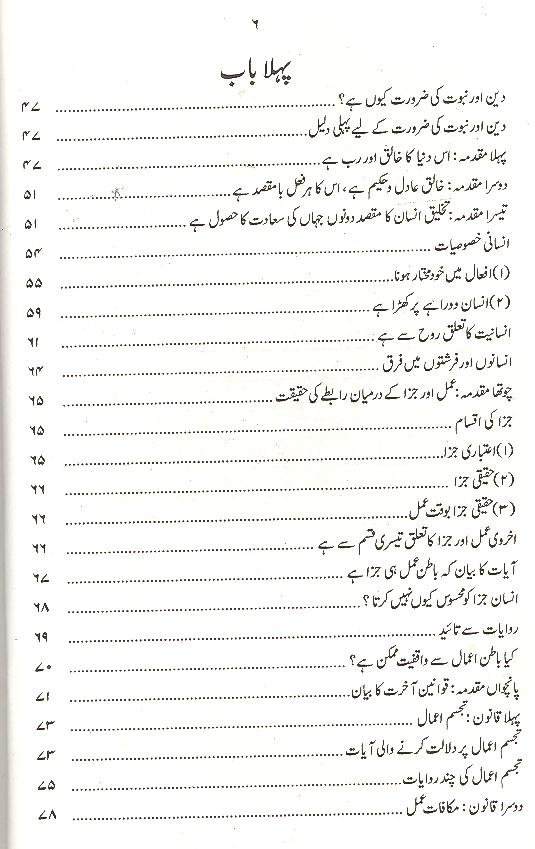 ۶
پہلا باب
دین اور نبوت کی ضرورت کیوں ہے؟ ........ ۴۷
دین اور نبوت کی ضرورت کے لیے پہلی دلیل ........ ۴۷
پہلا مقدمہ: اس دنیا کا خالق اور رب ہے ........ ۴۷
دوسرا مقدمہ: خالق عادل و حکیم ہے، اس کا ہر فعل بامقصد ہے ........ ۵۱
تیسرا مقدمہ: تخلیق انسان کا مقصد دونوں جہاں کی سعادت کا حصول ہے ........ ۵۱
انسانی خصوصیات ........ ۵۴
(۱) افعال میں خودمختار ہونا ........ ۵۵
(۲) انسان دوراہے پر کھڑا ہے ........ ۵۹
انسانیت کا تعلق روح سے ہے ........ ۶۱
انسانوں اور فرشتوں میں فرق ........ ۶۴
چوتھا مقدمہ: عمل اور جزا کے درمیان رابطے کی حقیقت ........ ۶۵
جزا کی اقسام ........ ۶۵
(۱) اعتباری جزا ........ ۶۵
(۲) حقیقی جزا ........ ۶۶
(۳) حقیقی جزا بوقت عمل ........ ۶۶
اخروی عمل اور جزا کا تعلق تیسری قسم سے ہے ........ ۶۶
آیات کا بیان کہ باطن عمل ہی جزا ہے ........ ۶۷
انسان جزا کو محسوس کیوں نہیں کرتا؟ ........ ۶۸
روایات سے تائید ........ ۶۹
کیا باطن اعمال سے واقفیت ممکن ہے؟ ........ ۷۰
پانچواں مقدمہ: قوانین آخرت کا بیان ........ ۷۱
پہلا قانون: تجسم اعمال ........ ۷۳
تجسم اعمال پر دلالت کرنے والی آیات ........ ۷۳
تجسم اعمال کی چند روایات ........ ۷۵
دوسرا قانون: مکافات عمل ........ ۷۸